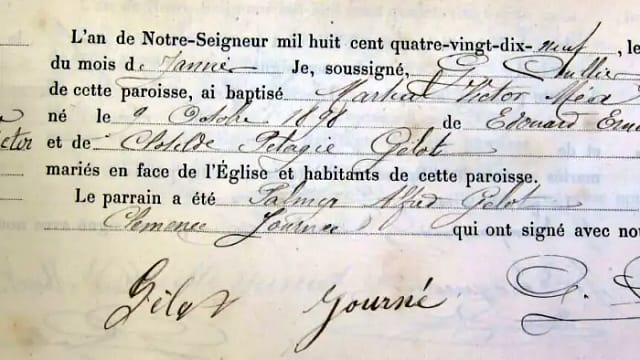 L'an de Notre-Seigneur mil huit cent quatre-vingt-dix-neuf, le
du mois de Janvier Je, soussigné, G.
de cette paroisse, ai baptisé Martial Victor
né le 9 Octobre 1898 de Edouard
ctor et de Clotilde Pélagie Gélot
mariés en face de l'Église et habitants de cette paroisse.
Le parrain a été Palmyr Alfred Gelot
Clemence Journée qui ont signé avec nou
Gélot Journé G.